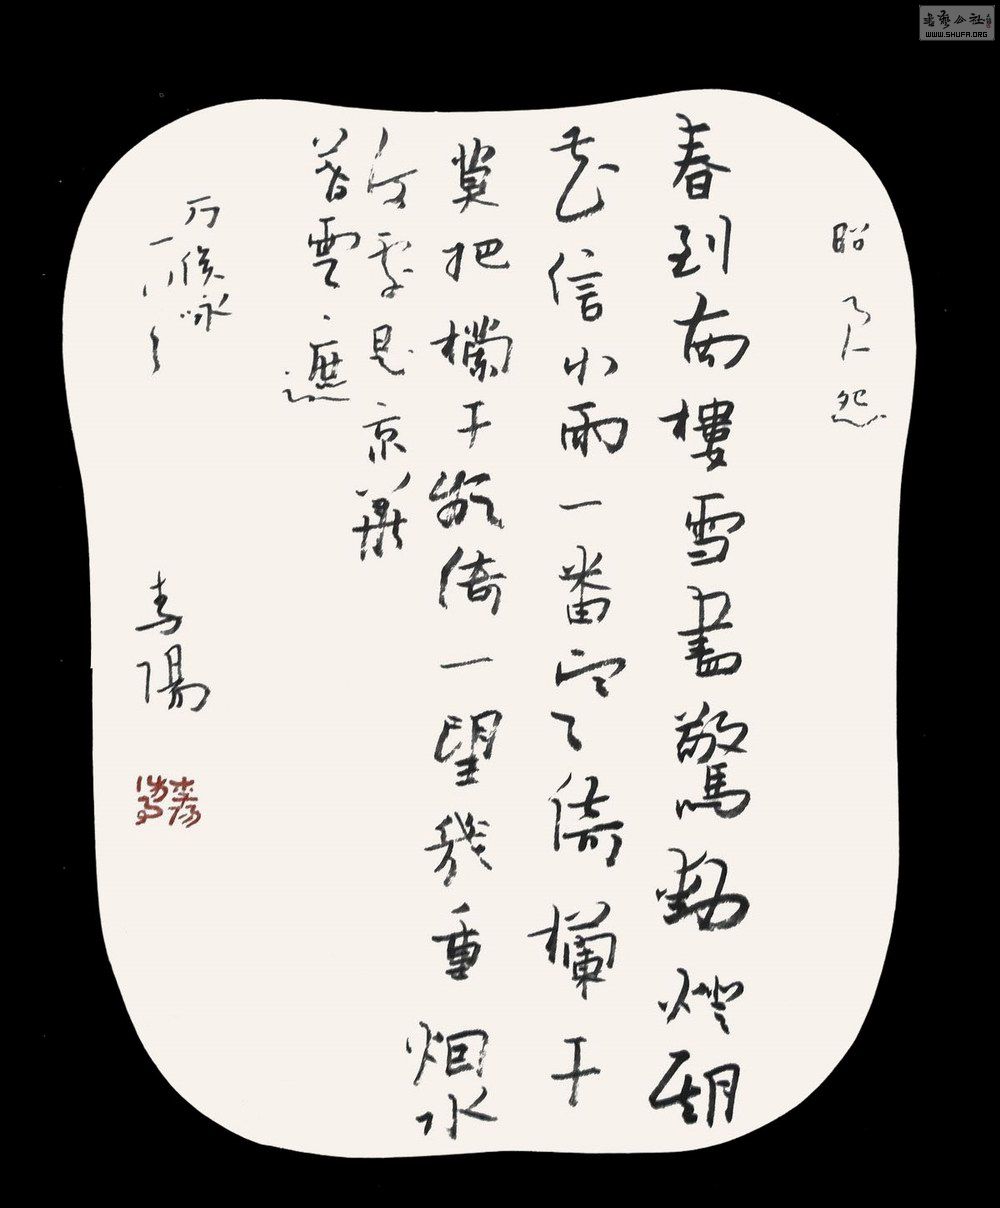 書藝公社
WWW.SHUFA.ORG
昭君怨
春到南樓雪盡驚動燈期
花信小雨一番寒倚欄干
莫把欄干頻倚一望幾重烟水
何處是京華
暮雲遮
万俟咏
陽